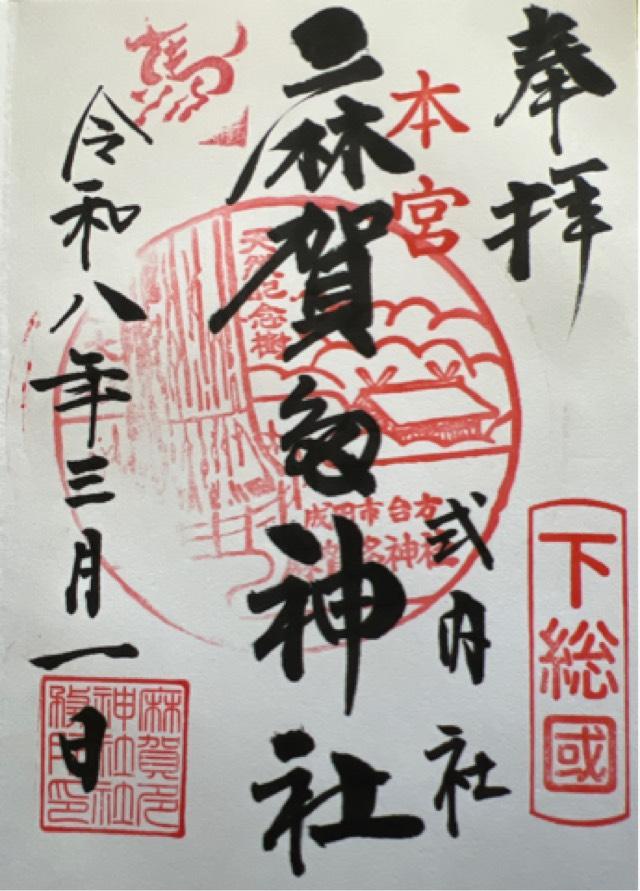 奉拝
下総國
本宮
式内社
麻賀多神社
天然記念樹
成田市台方
麻賀多神社
馬
令和八年三月一日